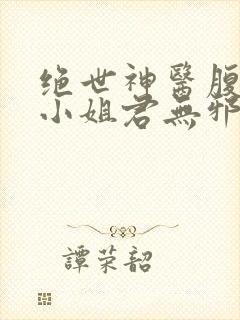 绝世神醫腹
小姐君無邪
譚荣韶